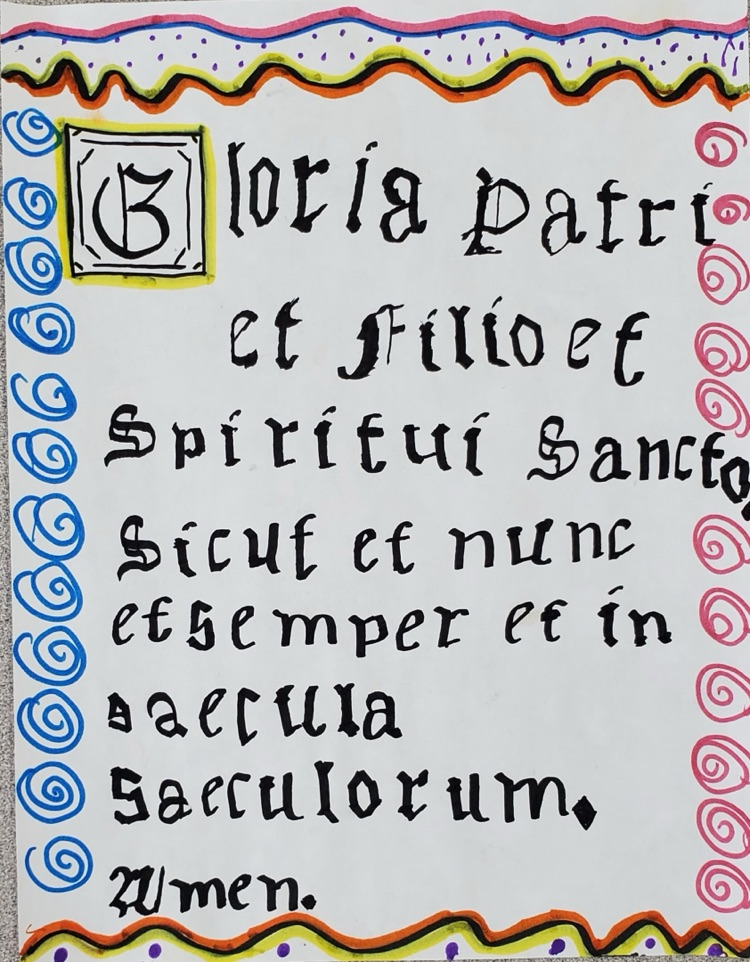 Gloria Patri
et Filio et
Spiritui Sancto,
Sicut et nunc
et semper et in
saecula
Saeculorum.
Amen.